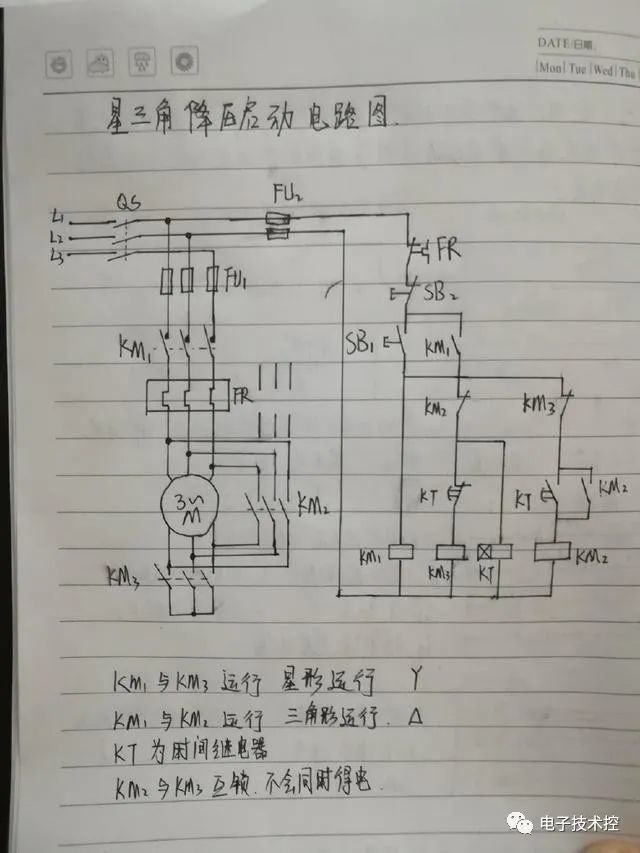 DATE/日期
Mon Tue Wed Thu
星三角降压启动电路图.
QS
FU2
L1
L2
L3
FR
FU1
SB2
SB1
KM1
KM1
FR
KM2
KM3
KT
KT
KM2
3~
M
KM2
KM3
KM1
KM3
KT
KM2
KM1与KM3运行 星形运行 Y
KM1与KM2运行 三角形运行. Δ
KT为时间继电器
KM2与KM3互锁.不会同时得电.
电子技术控